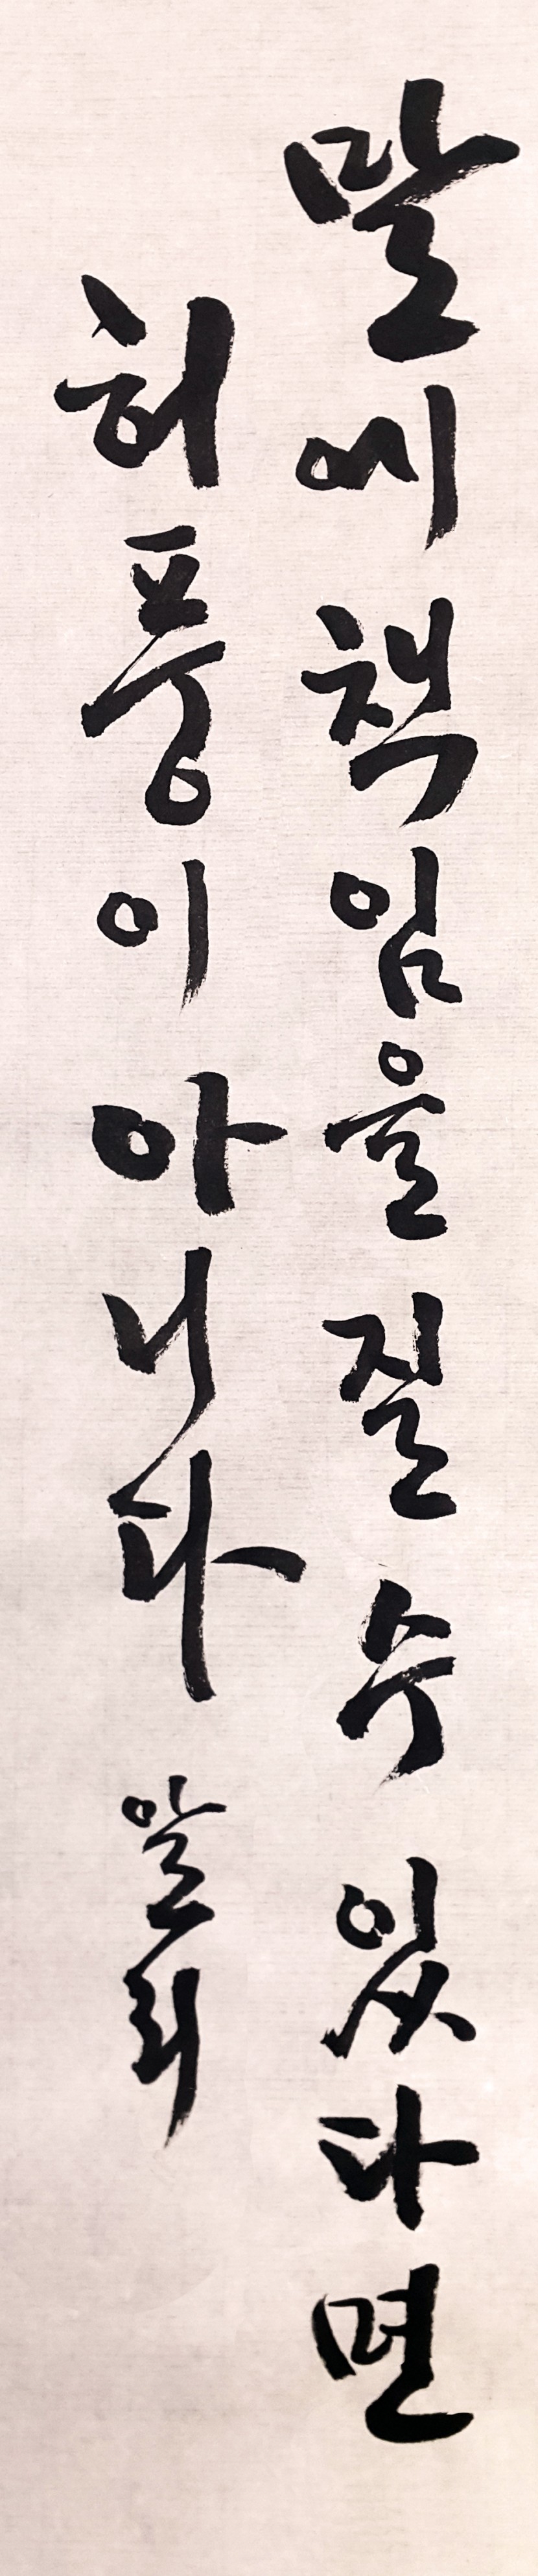 말에 책임을 질 수 있다면
허풍이 아니다 알리